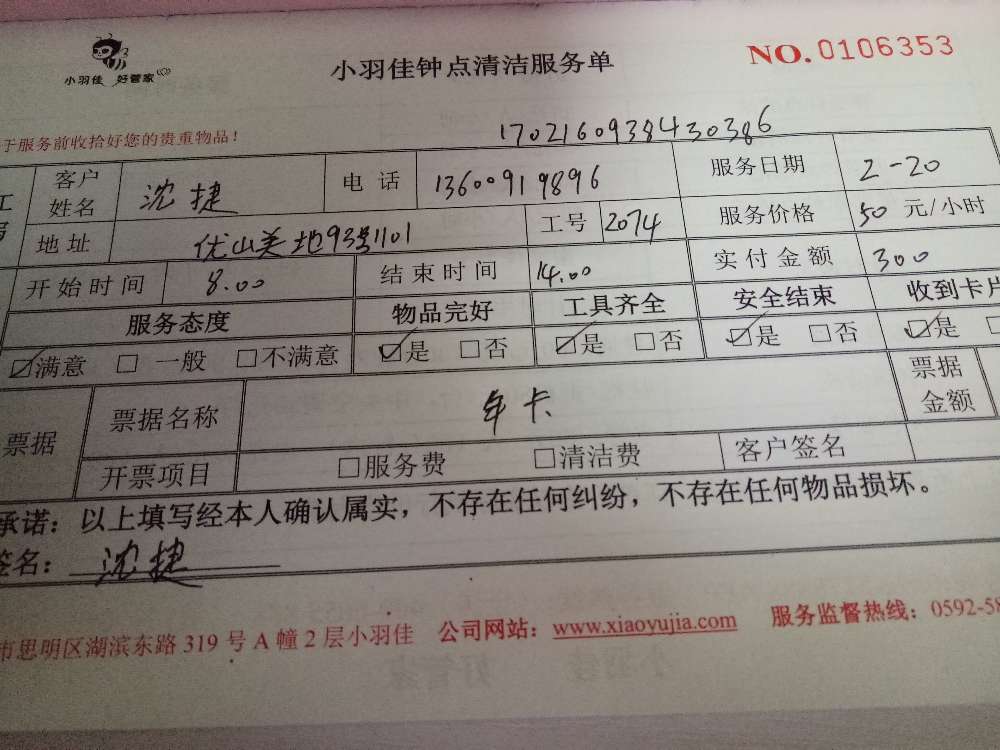 小羽佳 好管家
小羽佳钟点清洁服务单
NO.0106353
于服务前收拾好您的贵重物品!
170216093843 0386
客户姓名 沈捷 电话 13600919896 服务日期 2-20
地址 优山美地93号1101 工号 2074 服务价格 50 元/小时
开始时间 8.00 结束时间 14.00 实付金额 300
服务态度 物品完好 工具齐全 安全结束 收到卡片
☑满意 □ 一般 □不满意 ☑是 □否 ☑是 □否 ☑是 □否 ☑是
票据 票据名称 年卡 票据金额
开票项目 □服务费 □清洁费 客户签名
承诺：以上填写经本人确认属实，不存在任何纠纷，不存在任何物品损坏。
签名：沈捷
市思明区湖滨东路 319 号 A 幢 2 层小羽佳 公司网站：www.xiaoyujia.com 服务监督热线：0592-58